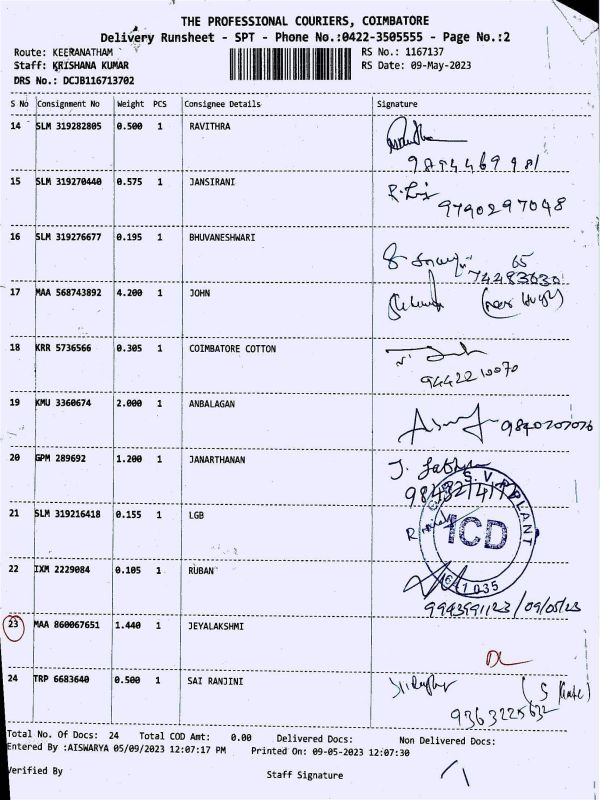 THE PROFESSIONAL COURIERS, COIMBATORE
Delivery Runsheet - SPT - Phone No.:0422-3505555 - Page No.:2
Route: KEERANATHAM RS No.: 1167137
Staff: KRISHANA KUMAR RS Date: 09-May-2023
DRS No.: DCJB116713702
S No Consignment No Weight PCS Consignee Details Signature
14 SLM 319282805 0.500 1 RAVITHRA
15 SLM 319270440 0.575 1 JANSIRANI
9790297048
16 SLM 319276677 0.195 1 BHUVANESHWARI
65
74483030
17 MAA 568743892 4.200 1 JOHN
18 KRR 5736566 0.305 1 COIMBATORE COTTON
9442210070
19 KMU 3360674 2.000 1 ANBALAGAN
9840707076
20 GPM 289692 1.200 1 JANARTHANAN
21 SLM 319216418 0.155 1 LGB
ICD
22 IXM 2229084 0.105 1 RUBAN
9943991123/09/05/23
23 MAA 860067651 1.440 1 JEYALAKSHMI
DL
24 TRP 6683640 0.500 1 SAI RANJINI
9363225632
Total No. Of Docs: 24 Total COD Amt: 0.00 Delivered Docs: Non Delivered Docs:
Entered By :AISWARYA 05/09/2023 12:07:17 PM Printed On: 09-05-2023 12:07:30
Verified By Staff Signature